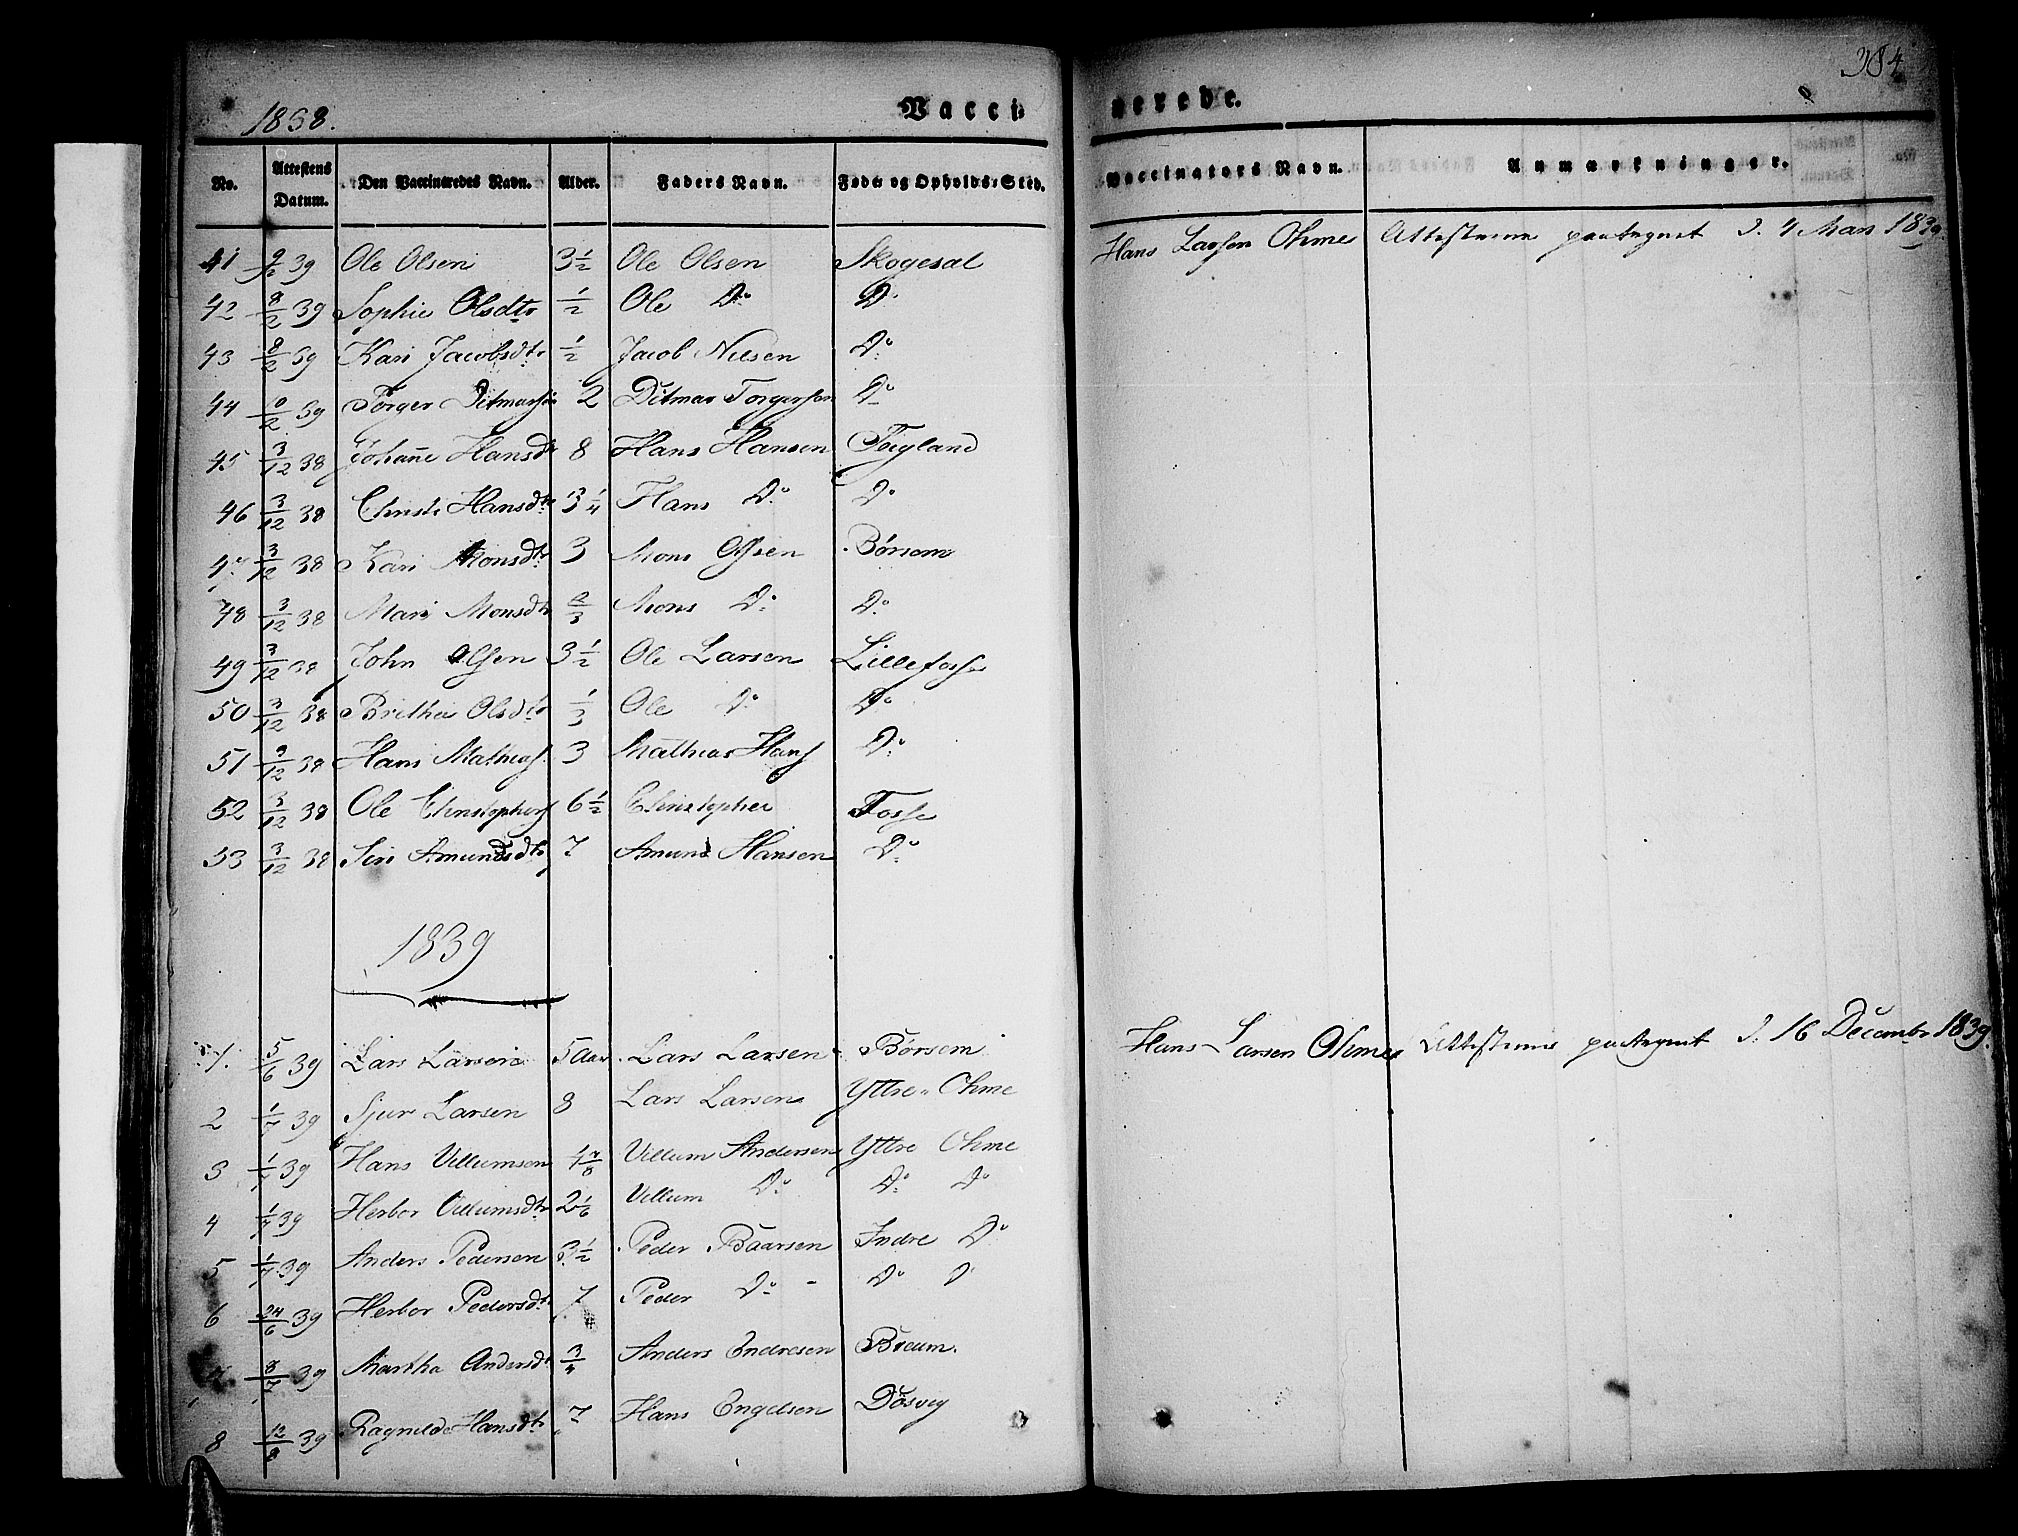 384
1838.
Vacci
nerede.
No.
Attestens Datum.
Den Vaccineredes Navn.
Alder.
Faders Navn.
Føde- og Opholds-Sted.
Vaccinators Navn.
Anmærkninger.
41 9/2 39 Ole Olsen 3 1/2 Ole Olsen Skogesal Hans Larsen Ohme Attesterne paategnet d. 4 Mars 1839.
42 8/2 39 Sophie Olsdtr 1/2 Ole Do Do
43 8/2 39 Kari Jacobsdtr 1/2 Jacob Nilsen Do
44 10/2 39 Torger Ditmarsen 2 Ditmar Torgersen Do
45 3/12 38 Johanne Hansdtr 8 Hans Hansen Teigland
46 3/12 38 Christi Hansdtr 3 1/4 Hans Do Do
47 3/12 38 Kari Monsdtr 3 Mons Olsen Børsem
48 3/12 38 Mari Monsdtr 2/3 Mons Do Do
49 3/12 38 John Olsen 3 1/2 Ole Larsen Lillefosse
50 3/12 38 Brithe Olsdtr 1/3 Ole Do Do
51 3/12 38 Hans Mathias. 3 Mathias Hans Do
52 3/12 38 Ole Christophers 6 1/2 Christopher Fosse
53 3/12 38 Siri Amundsdtr 7 Amund Hansen Do
1839
1. 5/6 39 Lars Larsen 5 Aar Lars Larsen Børsem Hans Larsen Ohme Attesterne paategnet d. 16 Decembr 1839.
2 1/7 39 Sjur Larsen 8 Lars Larsen Yttre Ohme
3 1/7 39 Hans Villumsen Villum Andersen Yttre Ohme
4 1/7 39 Herbor Villumsdtr 2 1/6 Villum Do Do Do
5 1/7 39 Anders Pedersen 3 1/2 Peder Baarsen Indre Do
6 24/6 39 Herbor Pedersdtr 7 Peder Do Do Do
7 8/7 39 Martha Andersdtr 3/4 Anders Endresen Breum.
8 12/8 39 Ragnilde Hansdtr 7 Hans Engelsen Døsvig